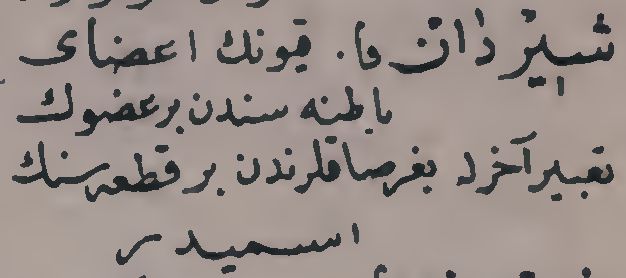 شیردان فا. قیونك اعضای
باطنه سندن بر عضوك
تعبیر آخرله بغرصاقلرندن بر قطعه سنك
اسمیدر